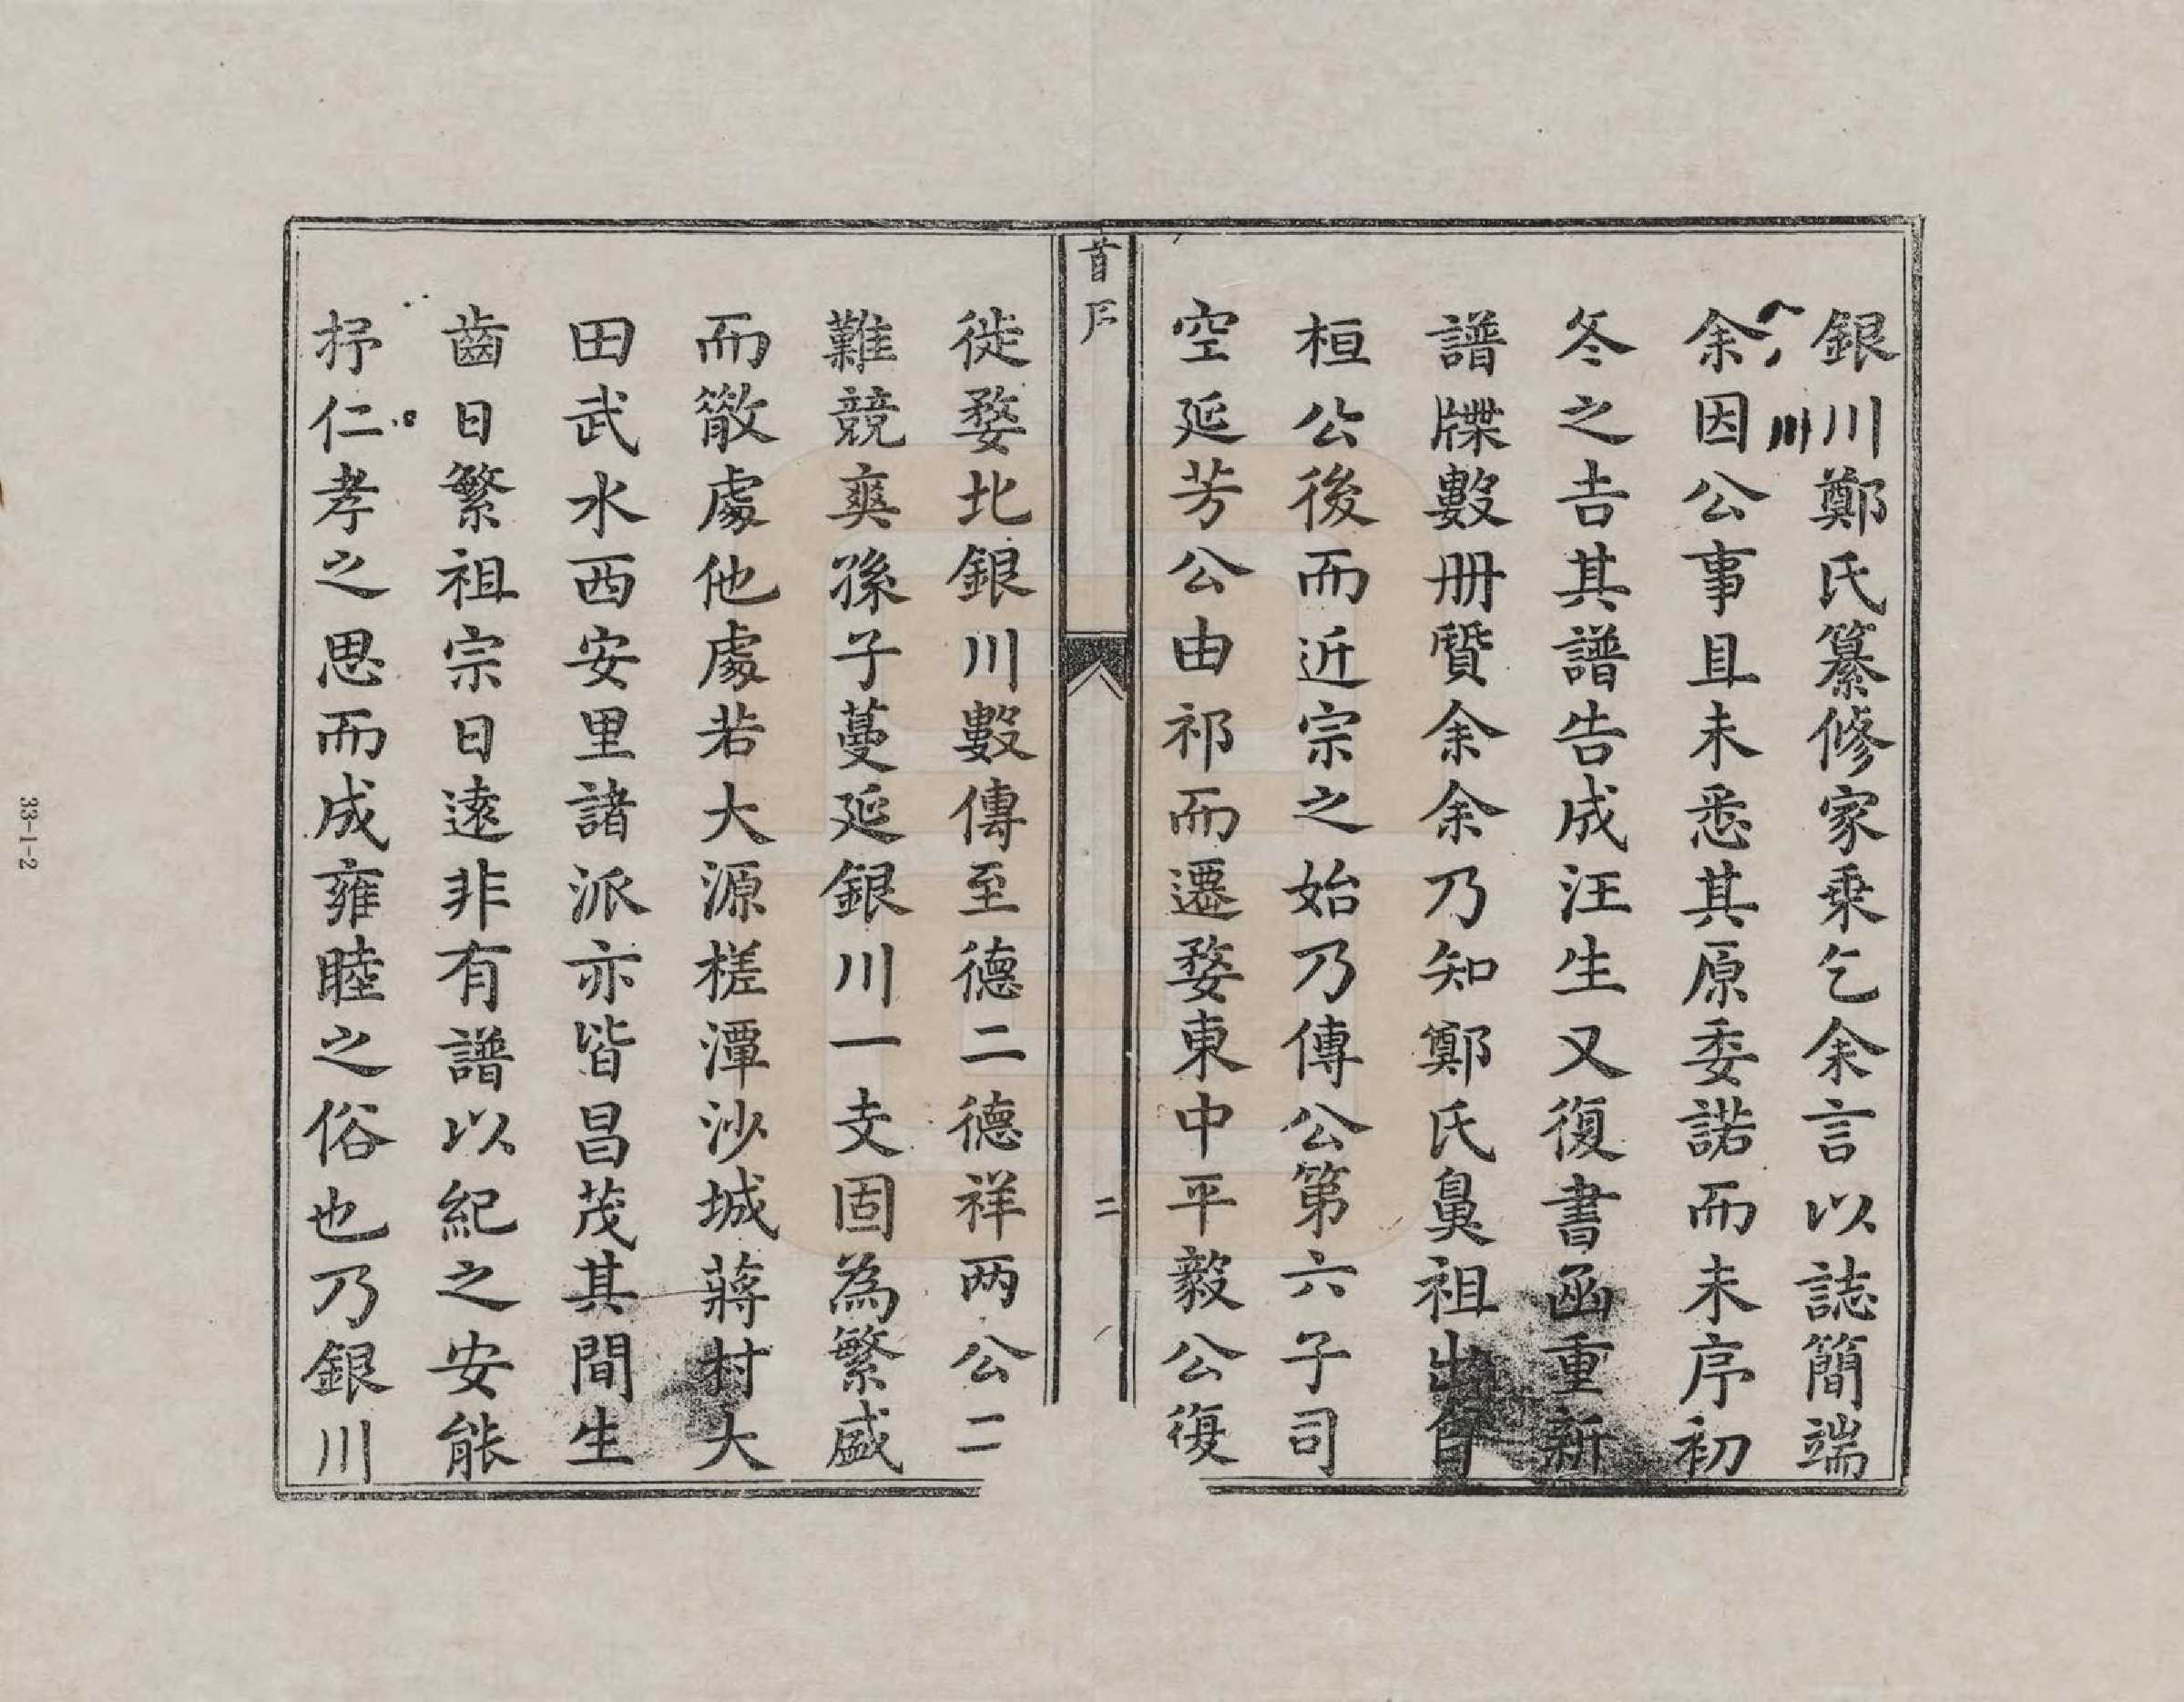 銀川鄭氏纂修家乗乞余言以誌簡端
余因公事且未悉其原委諾而未序初
冬之吉其譜告成汪生又復書函重新
譜牒數册賫余余乃知鄭氏鼻祖出自
桓公後而近宗之始乃傳公第六子司
空延芳公由祁而遷婺東中平毅公復
首序
二
徙婺北銀川數傳至德二德祥两公二
難競爽孫子蔓延銀川一支固為繁盛
而散處他處若大源槎潭沙城蔣村大
田武水西安里諸派亦皆昌茂其間生
齒日繁祖宗日遠非有譜以紀之安能
抒仁孝之思而成雍睦之俗也乃銀川
33-1-2